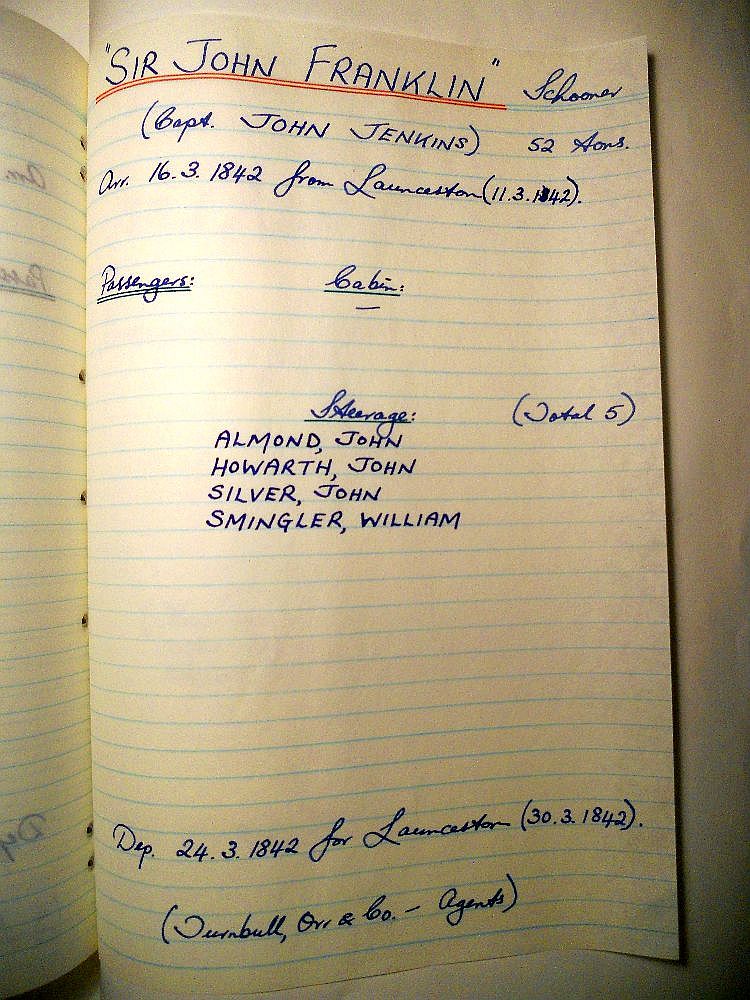 "SIR JOHN FRANKLIN" Schooner
(Capt. JOHN JENKINS) 52 tons.
Arr. 16.3.1842 from Launceston (11.3.1842).
Passengers: Cabin:
—
Steerage: (Total 5)
ALMOND, JOHN
HOWARTH, JOHN
SILVER, JOHN
SMINGLER, WILLIAM
Dep. 24.3.1842 for Launceston (30.3.1842).
(Turnbull, Orr & Co. — Agents)